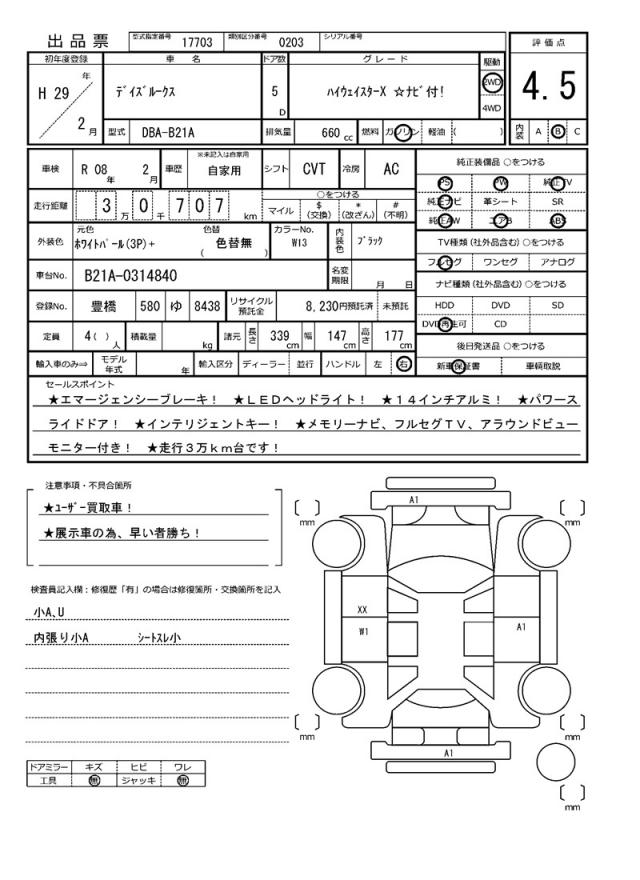 出品票 型式指定番号 17703 類別区分番号 0203 シリアル番号
初年度登録 車名 ドア数 グレード 駆動 評価点
H 29 年 2 月 デイズルークス 5 D ハイウェイスターX ☆ナビ付! 2WD 4WD 4.5
型式 DBA-B21A 排気量 660 cc 燃料 ガソリン 軽油 ( ) 内装 A B C
車検 R 08 年 2 月 車歴 ※未記入は自家用 自家用 シフト CVT 冷房 AC
純正装備品 ○をつける
PS PW 純正TV
純正ナビ 革シート SR
純正AW エアB ABS
走行距離 3 万 0 千 7 0 7 km ○をつける マイル $ (交換) * (改ざん) # (不明)
外装色 元色 ホワイトパール(3P)+ 色替 ( 色替無 ) カラーNo. W13 内装色 ブラック
TV種類(社外品含む)○をつける
フルセグ ワンセグ アナログ
車台No. B21A-0314840 名変期限 月 日
ナビ種類(社外品含む)○をつける
登録No. 豊橋 580 ゆ 8438 リサイクル預託金 8,230円預託済 未預託
HDD DVD SD
DVD再生可 CD
定員 4( ) 人 積載量 kg 諸元 長さ 339 cm 幅 147 cm 高さ 177 cm
後日発送品 ○をつける
輸入車のみ⇒ モデル年式 年 輸入区分 ディーラー 並行 ハンドル 左 右 新車保証書 車輌取説
セールスポイント
★エマージェンシーブレーキ! ★LEDヘッドライト! ★14インチアルミ! ★パワース
ライドドア! ★インテリジェントキー! ★メモリーナビ、フルセグTV、アラウンドビュー
モニター付き! ★走行3万km台です!
注意事項・不具合箇所
★ユーザー買取車!
★展示車の為、早い者勝ち!
検査員記入欄:修復歴「有」の場合は修復箇所・交換箇所を記入
小A、U
内張り小A シートスレ小
ドアミラー キズ ヒビ ワレ
工具 無 ジャッキ 無
A1
mm mm
XX
W1 A1
mm mm
A1
mm